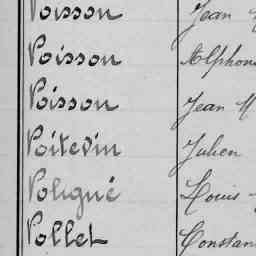 Poisson Jean
Poisson Alphon
Poisson Jean M
Poitevin Julien
Poligné Louis
Pollet Constan